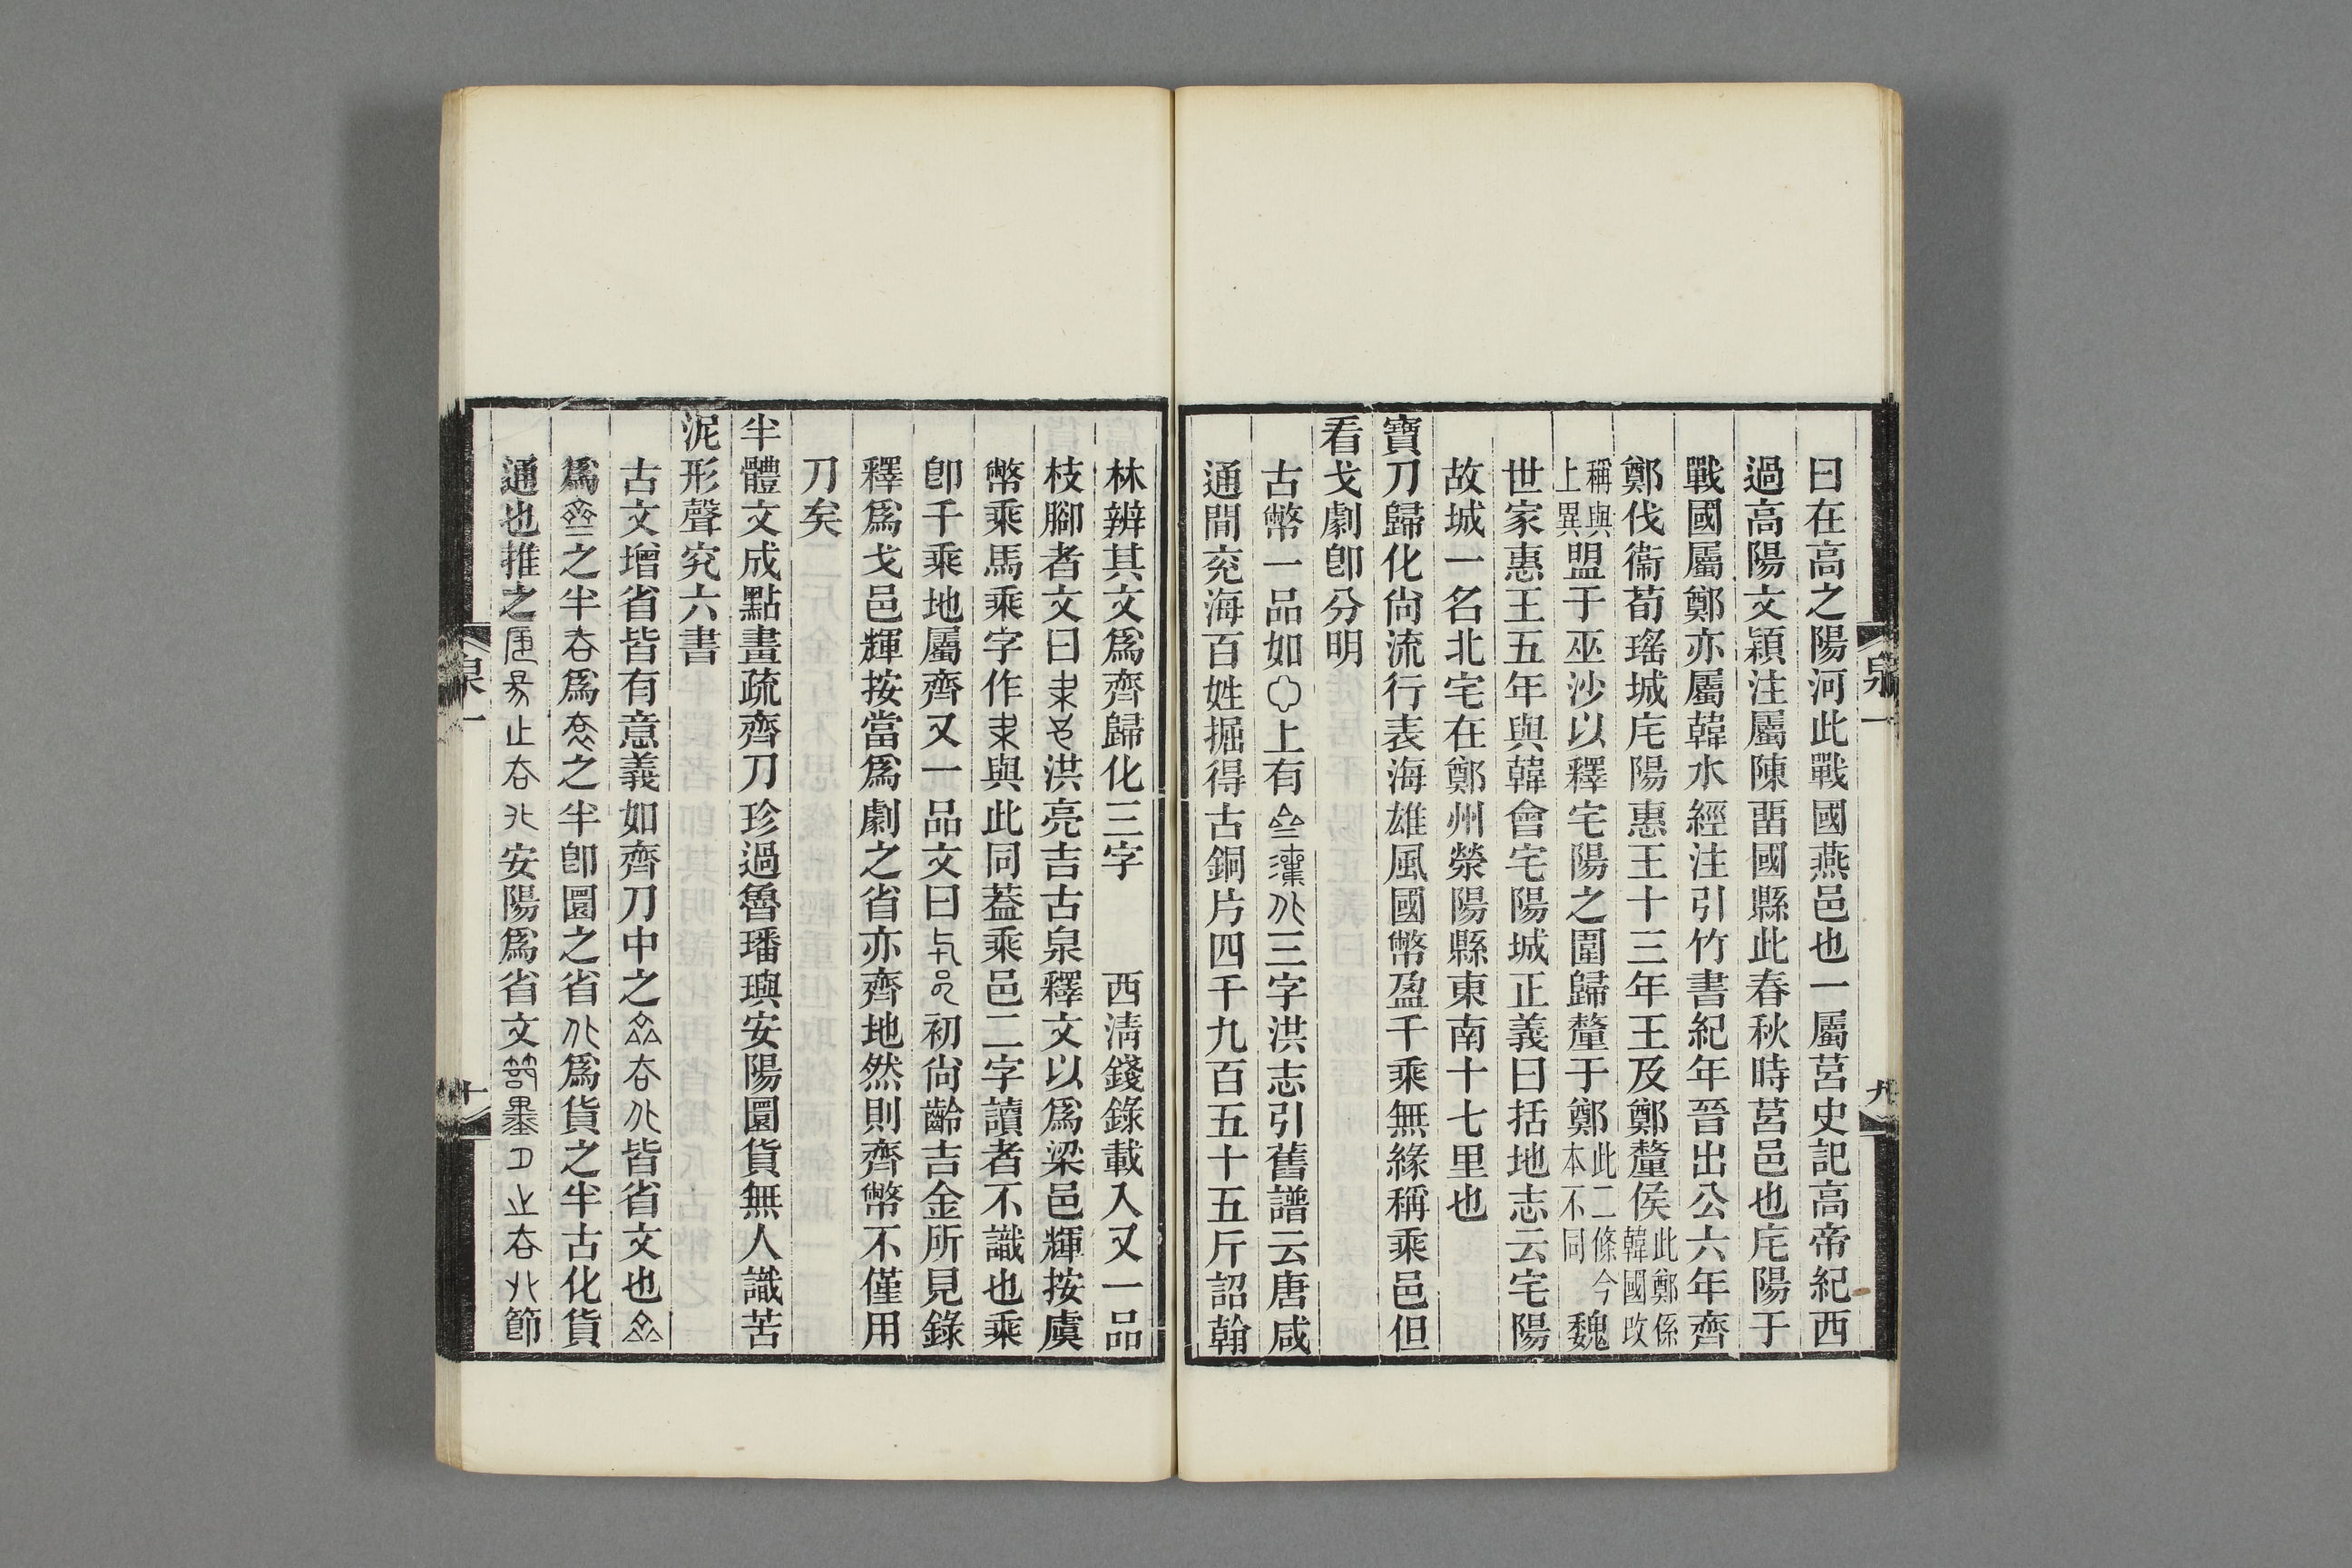 曰在高之陽河此戰國燕邑也一屬莒史記高帝紀西
過高陽文穎注屬陳畱國縣此春秋時莒邑也㡯陽于
戰國屬鄭亦屬韓水經注引竹書紀年晉出公六年齊
鄭伐衞荀瑤城㡯陽惠王十三年王及鄭釐侯此鄭係韓國改
稱與上異盟于巫沙以釋宅陽之圍歸釐于鄭此二條今本不同魏
世家惠王五年與韓會宅陽城正義曰括地志云宅陽
故城一名北宅在鄭州滎陽縣東南十七里也
寶刀歸化尙流行表海雄風國幣盈千乘無緣稱乘邑但
看戈劇卽分明
古幣一品如上有三字洪志引舊譜云唐咸
通間兖海百姓掘得古銅片四千九百五十五斤詔翰
泉一
九
林辨其文爲齊歸化三字 西淸錢錄載入又一品
枝腳者文曰洪亮吉古泉釋文以爲梁邑輝按虞
幣乘馬乘字作與此同葢乘邑二字讀者不識也乘
卽千乘地屬齊又一品文曰初尙齡吉金所見錄
釋爲戈邑輝按當爲劇之省亦齊地然則齊幣不僅用
刀矣
半體文成點畫疏齊刀珍過魯璠璵安陽圜貨無人識苦
泥形聲究六書
古文增省皆有意義如齊刀中之皆省文也
爲之半爲之半卽圜之省爲貨之半古化貨
通也推之安陽爲省文節
泉一
十